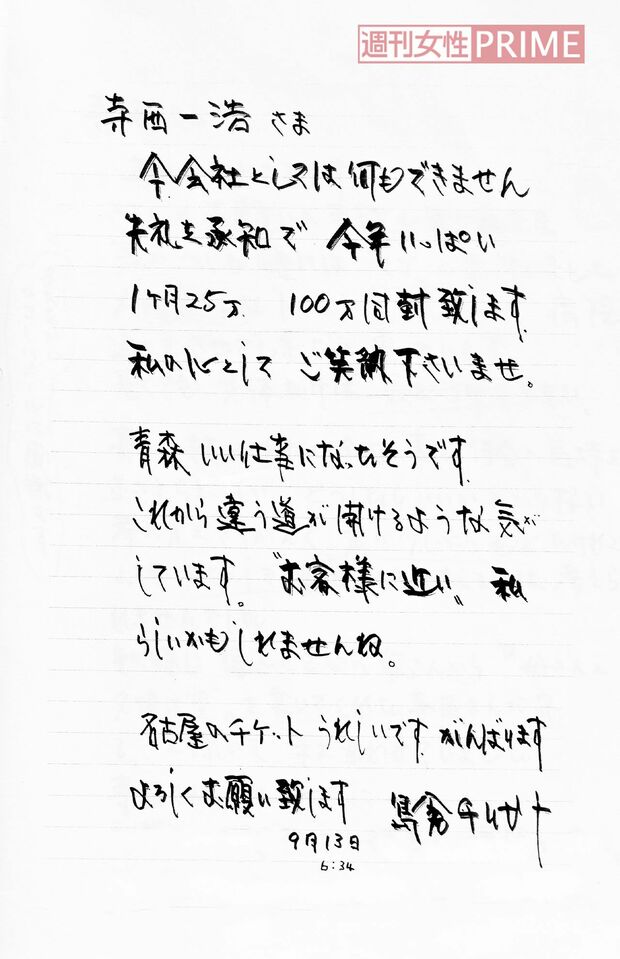 週刊女性PRIME
寺西一浩さま
今会社としては何もできません
失礼を承知で 今年いっぱい
1ヶ月25万 100万同封致します
私の心として ご笑納下さいませ。
青森 いい仕事になったそうです
これから違う道が開けるような気が
しています。“お客様に近い” 私
らしいかもしれませんね。
名古屋のチケット うれしいです がんばります
よろしくお願い致します 島倉千代
9月13日
6:34